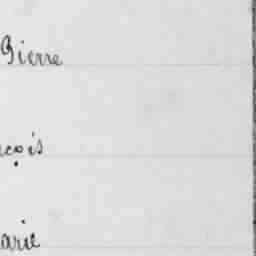 Pierre
nçois
arie